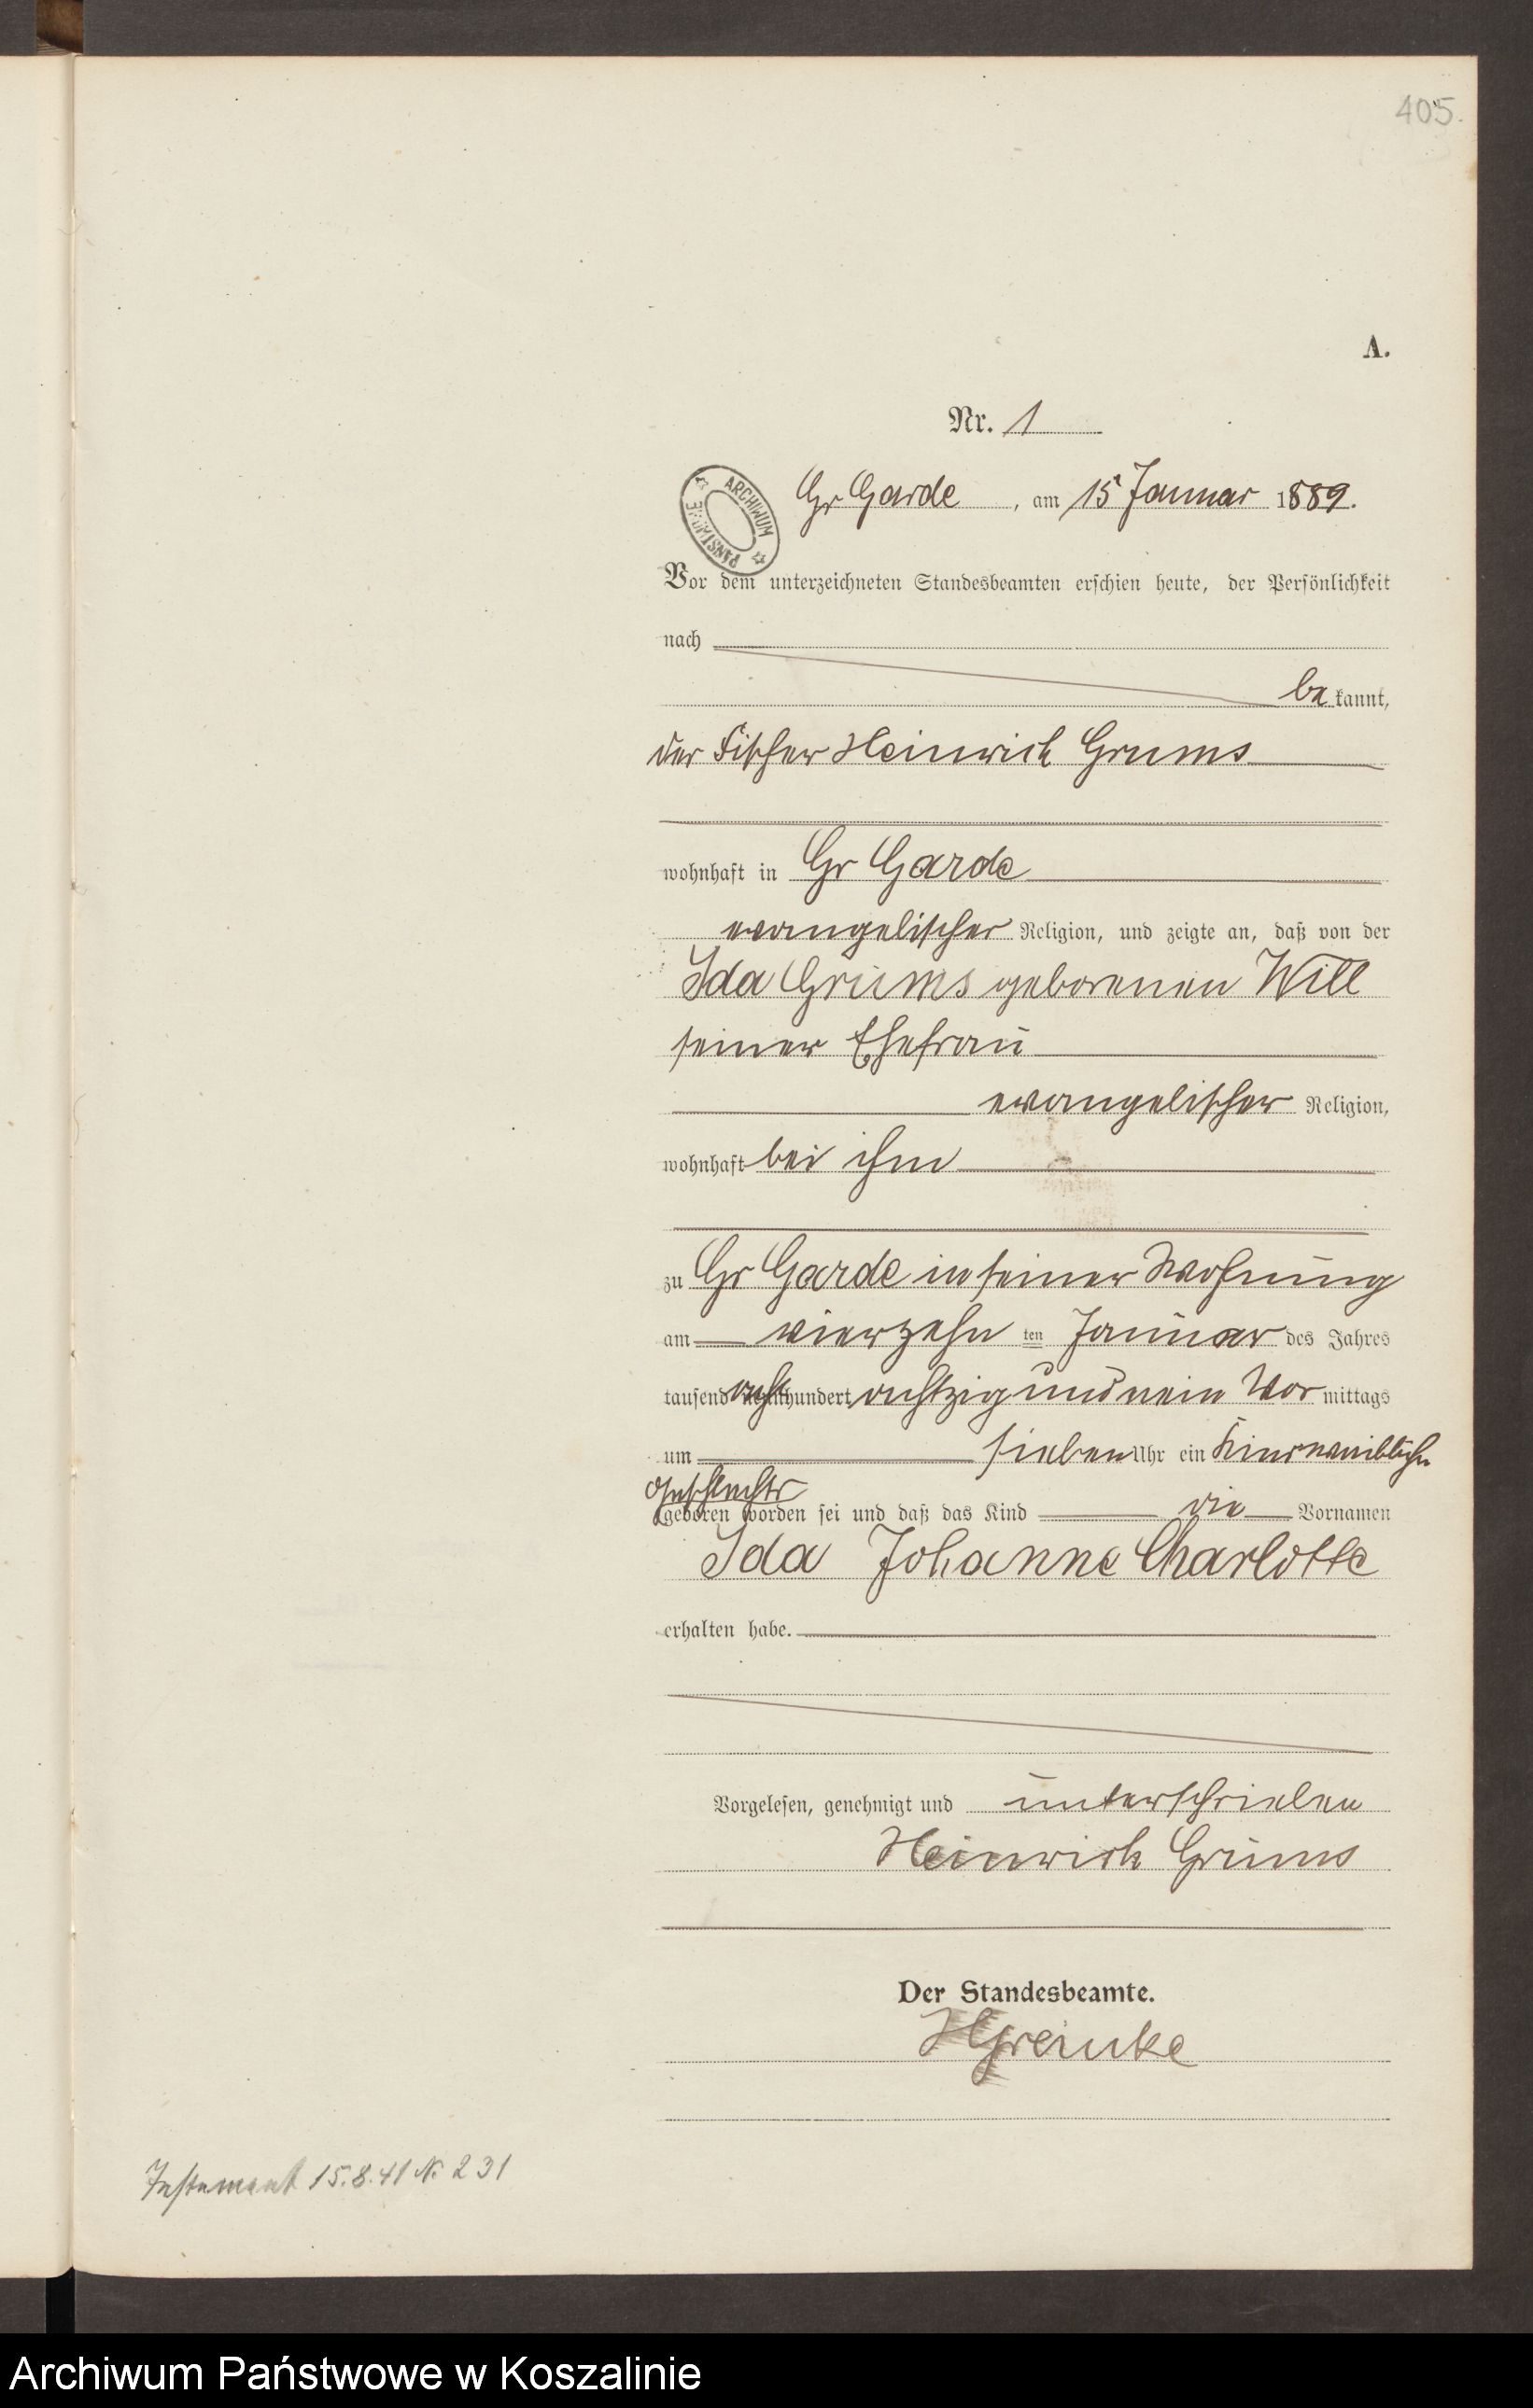 405.
A.
Nr. 1
ARCHIWUM PAŃSTWOWE
Gr Garde, am 15 Januar 1889.
Vor dem unterzeichneten Standesbeamten erschien heute, der Persönlichkeit
nach
be kannt,
der Fischer Heinrich Grums
wohnhaft in Gr Garde
evangelischer Religion, und zeigte an, daß von der
Ida Grums geborenen Will
seiner Ehefrau
evangelischer Religion,
wohnhaft bei ihm
zu Gr Garde in seiner Wohnung
am vierzehn ten Januar des Jahres
tausend acht hundert achtzig und nein Vor mittags
um sieben Uhr ein Kind weiblichen
Geschlechts
geboren worden sei und daß das Kind die Vornamen
Ida Johanne Charlotte
erhalten habe.
Vorgelesen, genehmigt und unterschrieben
Heinrich Grums
Der Standesbeamte.
HGreinke
Testament 15.8.41 N. 231
Archiwum Państwowe w Koszalinie